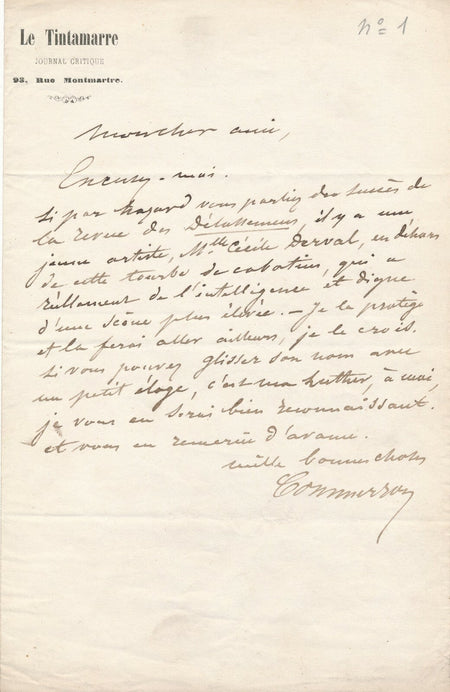 Le Tintamarre
JOURNAL CRITIQUE
93, Rue Montmartre.
N° 1
Mon cher ami,
Excusez-moi.
Si par hasard vous parliez du succès de
la revue des Délassemens, il y a une
jeune artiste, Mlle Cécile Derval, en dehors
de cette tourbe de cabotins, qui a
réellement de l'intelligence et digne
d'une scène plus élevée. — Je la protège
et la ferai aller ailleurs, je le crois.
Si vous pouvez glisser son nom avec
un petit éloge, c'est ma, à moi,
je vous en serai bien reconnaissant.
et vous en remercie d'avance.
mille bonnes choses
Commerson